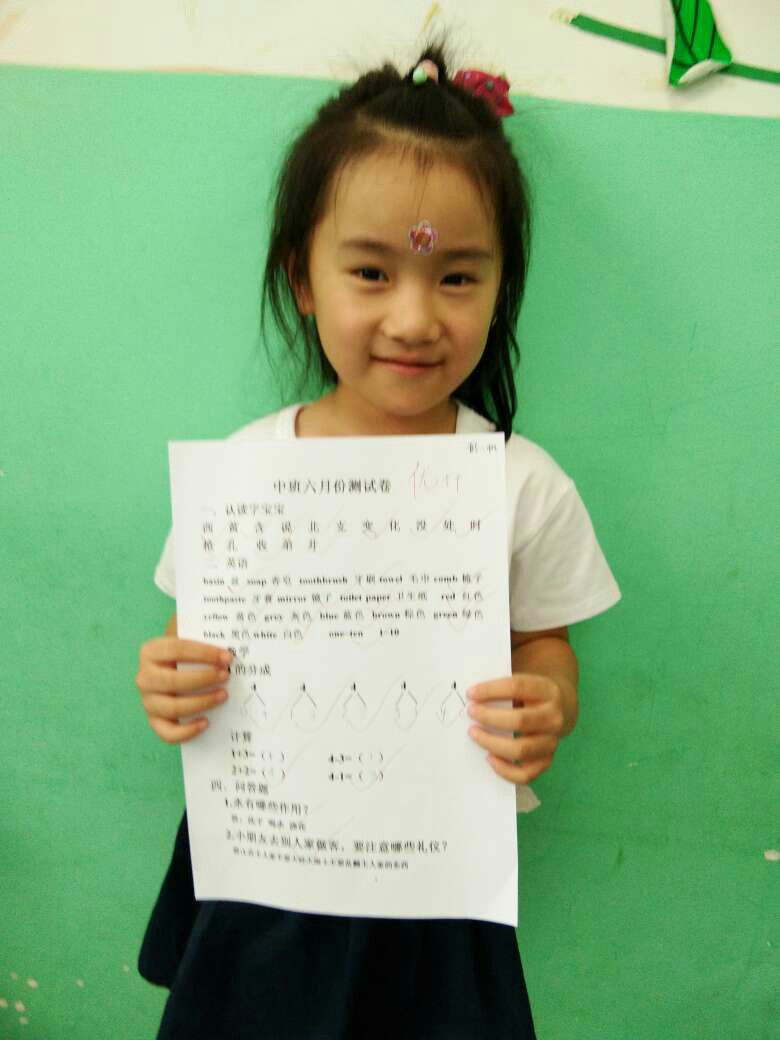 中班六月份测试卷
一、认读字宝宝
西 黄 含 说 北 支 变 化 没 处 时
枪 孔 收 弟 升
二 英语
basin 盆 soap 香皂 toothbrush 牙刷 towel 毛巾 comb 梳子
toothpaste 牙膏 mirror 镜子 toilet paper 卫生纸 red 红色
yellow 黄色 grey 灰色 blue 蓝色 brown 棕色 green 绿色
black 黑色 white 白色 one-ten 1-10
数学
的分成
4 4 4 4 4
计算
1+3=( ) 4-3=( )
2+2=( ) 4-1=( )
四、问答题
1.水有哪些作用?
2.小朋友去别人家做客，要注意哪些礼仪?